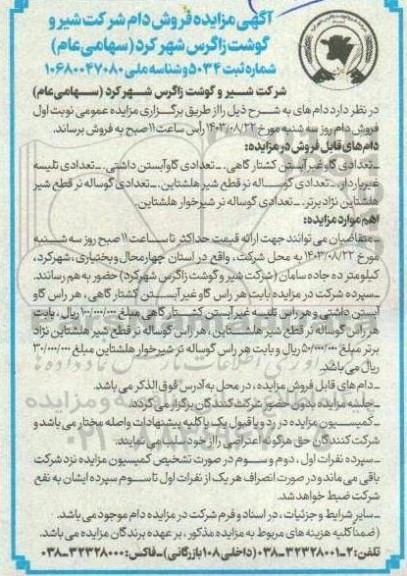 آگهی مزایده فروش دام شرکت شیر و
گوشت زاگرس شهر کرد (سهامی عام)
شماره ثبت ۵۰۳۴ و شناسه ملی ۱۰۶۸۰۰۴۷۰۸۰
شرکت شیر و گوشت زاگرس شهرکرد (سهامی عام)
در نظر دارد دام های به شرح ذیل را از طریق برگزاری مزایده عمومی نوبت اول
فروش دام روز سه شنبه مورخ ۱۴۰۳/۰۸/۲۲ رأس ساعت ۱۱ صبح به فروش برساند.
دام های قابل فروش در مزایده:
ـ تعدادی گاو غیر آبستن کشتار گاهی. ـ تعدادی گاو آبستن داشتی. ـ تعدادی تلیسه
غیر باردار. ـ تعدادی گوساله نر قطع شیر هلشتاین. ـ تعدادی گوساله نر قطع شیر
هلشتاین نژاد برتر. ـ تعدادی گوساله نر شیرخوار هلشتاین.
اهم موارد مزایده:
ـ متقاضیان می توانند جهت ارائه قیمت حداکثر تا ساعت ۱۱ صبح روز سه شنبه
مورخ ۱۴۰۳/۰۸/۲۲ به محل شرکت، واقع در استان چهارمحال و بختیاری، شهرکرد،
کیلومتر ده جاده سامان (شرکت شیر و گوشت زاگرس شهرکرد) حضور به هم رسانند.
ـ سپرده شرکت در مزایده بابت هر راس گاو غیر آبستن کشتار گاهی، هر راس گاو
آبستن داشتی و هر راس تلیسه غیر آبستن کشتار گاهی مبلغ ۱۰۰/۰۰۰/۰۰۰ ریال، بابت
هر راس گوساله نر قطع شیر هلشتاین، هر راس گوساله نر قطع شیر هلشتاین نژاد
برتر مبلغ ۵۰/۰۰۰/۰۰۰ ریال و بابت هر راس گوساله نر شیرخوار هلشتاین مبلغ ۳۰/۰۰۰/۰۰۰
ریال می باشد.
ـ دام های قابل فروش مزایده، در محل به آدرس فوق الذکر می باشد.
ـ جلسه مزایده بدون حضور شرکت کنندگان برگزار می گردد.
ـ کمیسیون مزایده در رد یا قبول یک یا کلیه پیشنهادات واصله مختار می باشد و
شرکت کنندگان حق هرگونه اعتراضی را از خود سلب می نمایند.
ـ سپرده نفرات اول، دوم و سوم در صورت تشخیص کمیسیون مزایده نزد شرکت
باقی می ماند و در صورت انصراف هر یک از نفرات اول تا سوم سپرده ایشان به نفع
شرکت ضبط خواهد شد.
ـ سایر شرایط و جزئیات، در اسناد و فرم شرکت در مزایده دام موجود می باشد.
(ضمنا کلیه هزینه های مربوط به مزایده مذکور، بر عهده برندگان مزایده می باشد.
تلفن: ۲ـ۳۲۳۲۸۰۰۱ـ۰۳۸ (داخلی ۱۰۸ بازرگانی) ـ فاکس: ۳۲۳۲۸۰۰۰ـ۰۳۸